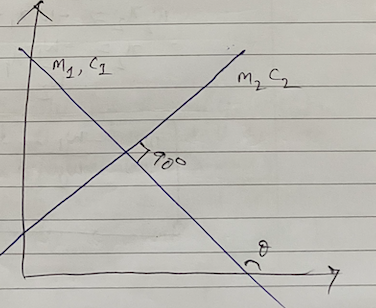 m₁, c₁
m₂ c₂
90°
θ